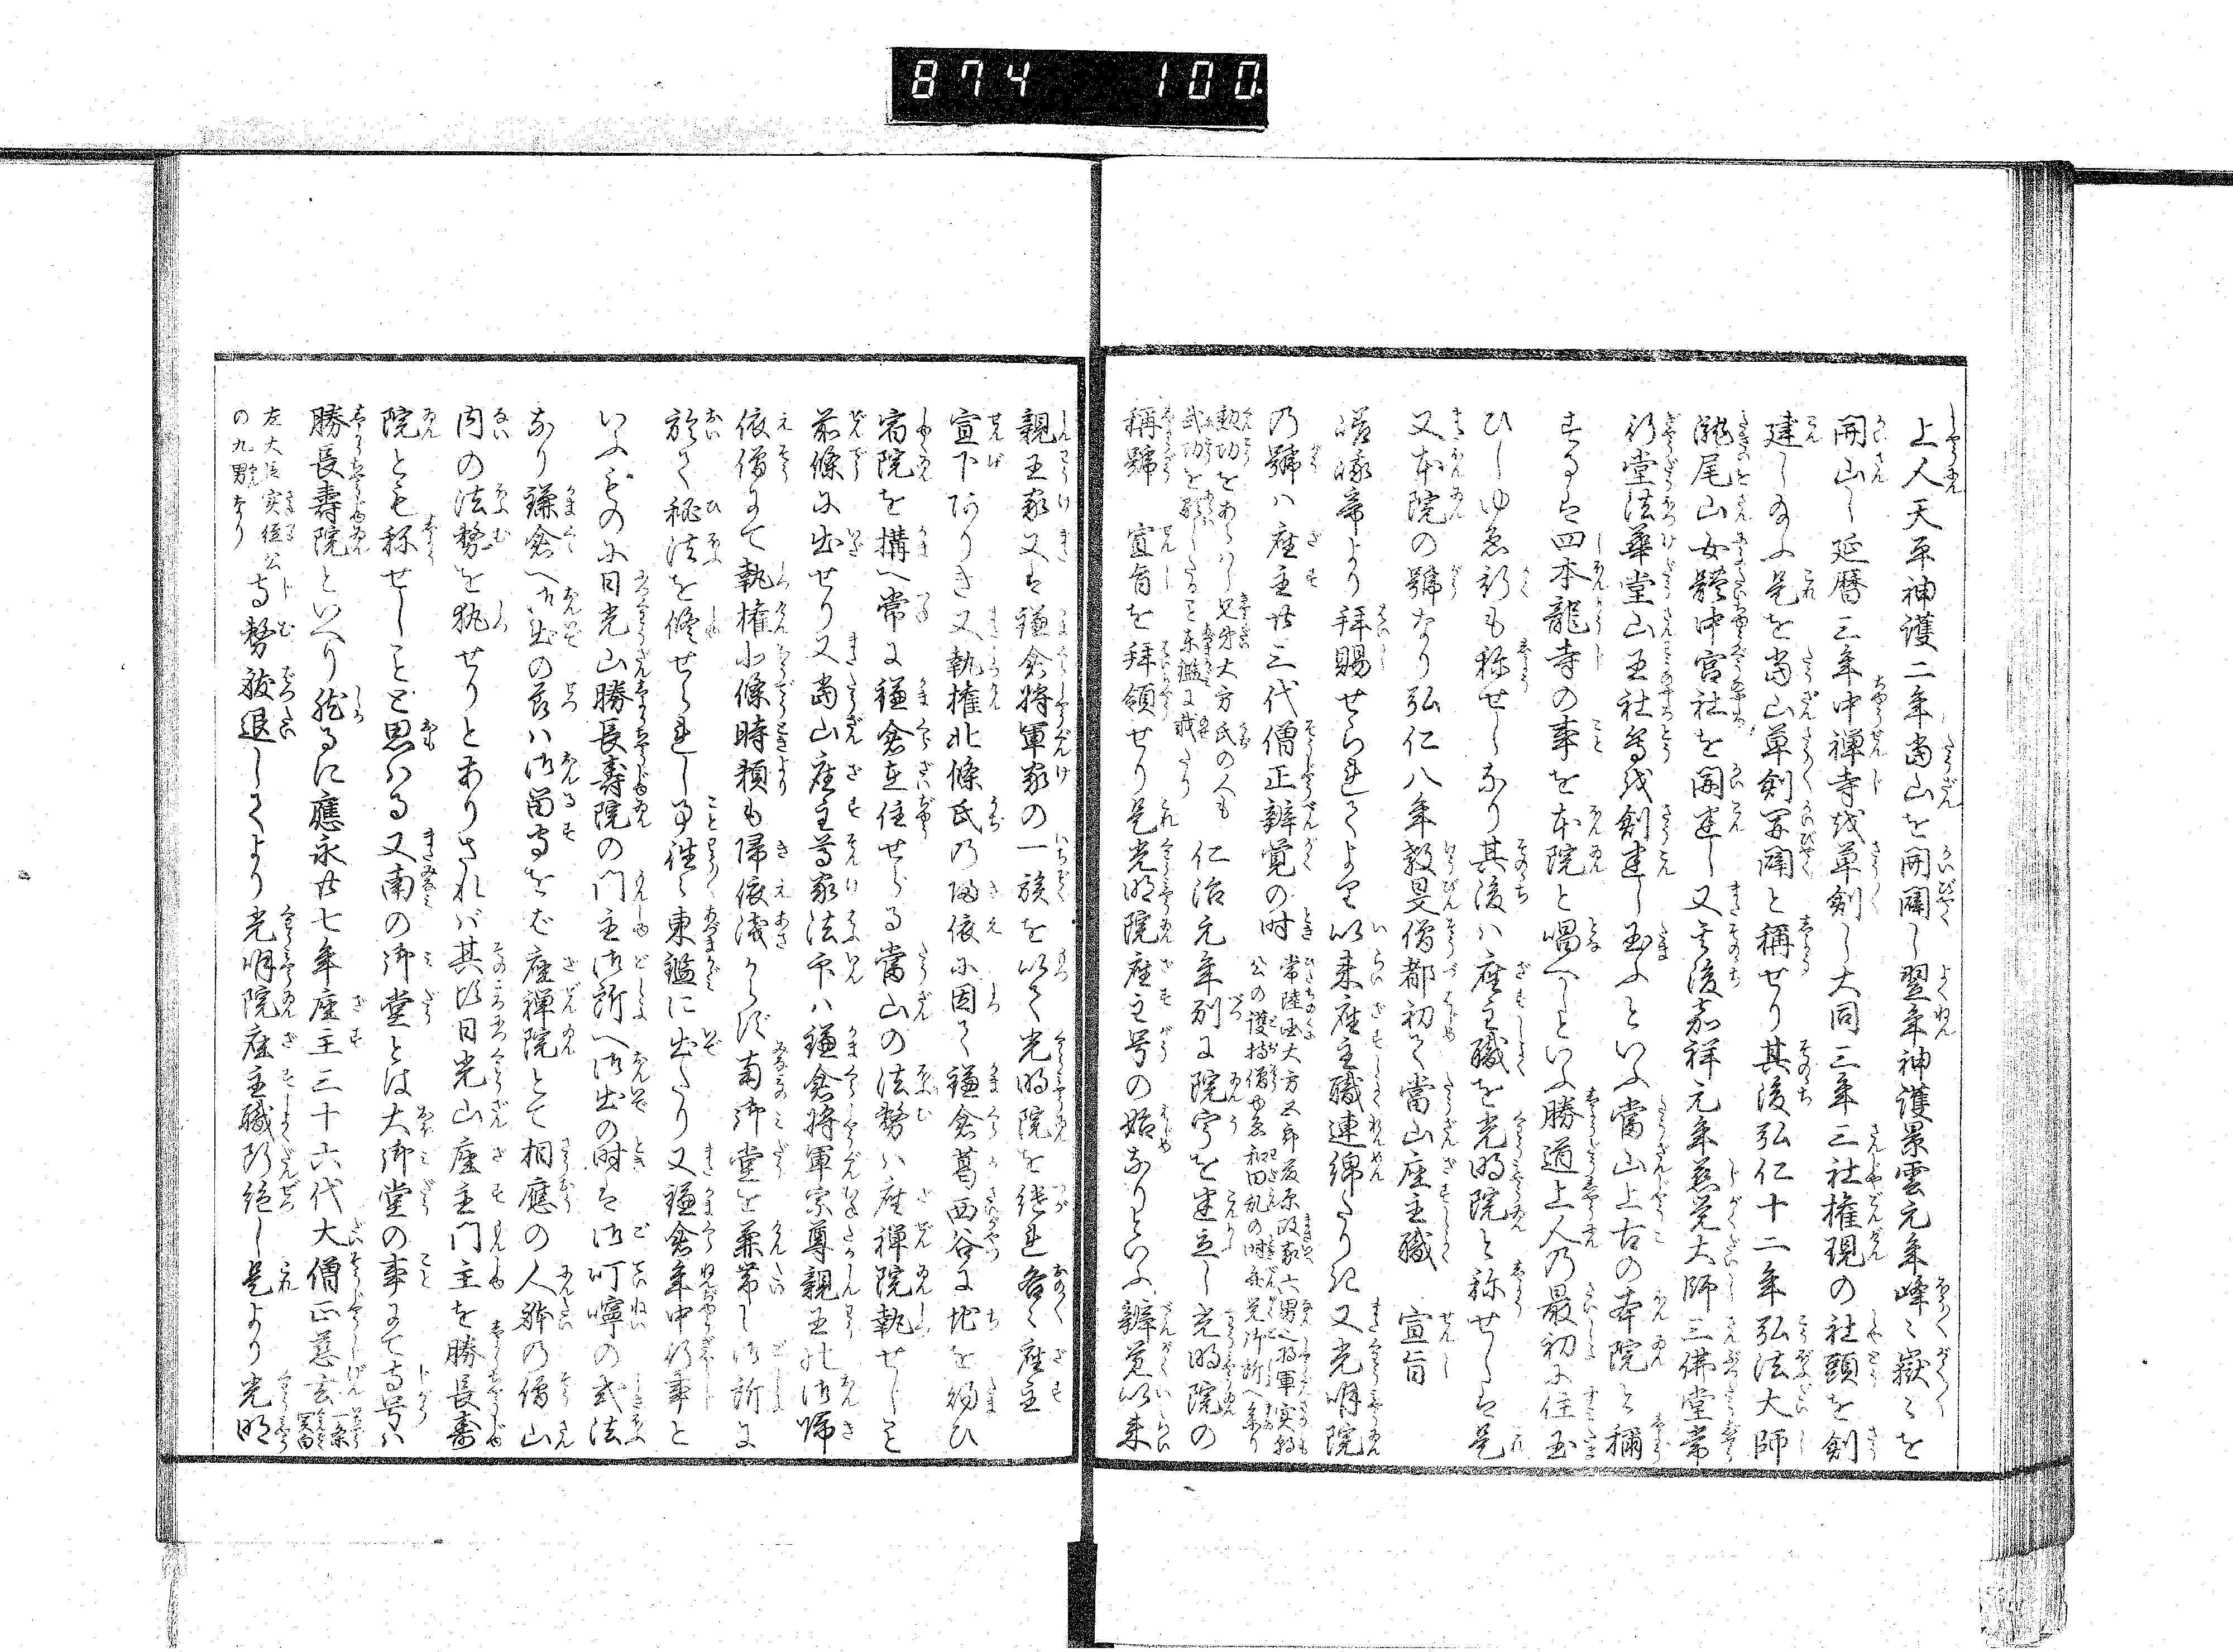 874 100.
上人天平神護二年當山を開闢し翌年神護景雲元年峰々嶽々を
開山し延暦三年中禪寺を草創し大同三年三社権現の社頭を創
建し給ふ是を當山草創開闢と稱せり其後弘仁十二年弘法大師
瀧尾山女體中宮社を開建し又其後嘉祥元年慈覚大師三佛堂常
行堂法華堂山王社等を創建し玉ふといふ當山上古の本院と稱
するは四本龍寺の事を本院と唱へしといふ勝道上人乃最初に住玉
ひしゆゑ斯も称せしなり其後ハ座主職を光明院と称せしは是
又本院の號なり弘仁八年教旻僧都初て當山座主職 宣旨
嵯峨帝より拝賜せられてより以来座主職連綿たりき又光明院
乃號ハ座主廿三代僧正辨覚の時常陸国大方五郎藤原政家六男将軍実朝
公の護持僧ゆゑ和田乱の時弁覚御所へ参り
勲功をあらハし兄弟大方氏の人も
武功を顕したること東鑑に載たり仁治元年別に院宇を建立し光明院の
稱號 宣旨を拝領せり是光明院座主号の始なりといふ辨覚以来
親王家又は鎌倉将軍家の一族を以て光明院を継せ各々座主
宣下ありき又執権北條氏乃帰依に因て鎌倉葛西谷に地を給ひ
宿院を構へ常に鎌倉在住せらる當山の法務ハ座禅院執せしこと
前條に出せり又當山座主尊家法印ハ鎌倉将軍宗尊親王の御帰
依僧にて執権北條時頼も帰依浅からす南御堂を兼帯し御所に
於て秘法を修せられし事往々東鑑に出たり又鎌倉年中行事と
いふものに日光山勝長壽院の門主御所へ御出の時は御叮嚀の式法
なり鎌倉へ御出の節ハ御留守をば座禅院とて相應の人躰の僧山
内の法務を執せりとありされバ其比日光山座主門主を勝長壽
院とも称せしことと思ハる又南の御堂とは大御堂の事にて寺号ハ
勝長壽院といへり然るに應永廿七年座主三十六代大僧正慈玄一条実
左大臣実経公
の九男なり寺務被退してより光明院座主職断絶し是より光明